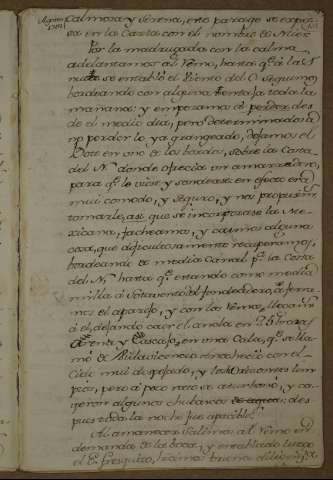 Agosto
1792
calmosa y serena, este parage se expresa
en la Carta con el nombre de
Por la madrugada con la calma
adelantamos al Remo, hasta qe. á las
se entabló el Viento del O. Seguimos
bordeando con alguna toda la
mañana: y empezamos á perder desde
el medio dia, pero determinado á
no perder lo ya grangeado, dejamos el
Bote en uno de los bordos, sobre la Costa
del N. donde ofrecia un amarradero,
para qe. lo viese y sondease: en efecto era
mui comodo, y seguro, y me propuse
tomarle, asi que se incorporase la Mexicana,
facheamos, y caimos alguna
cosa, que dificultosamente recuperamos,
bordeando de media Canal pa. la Costa
del N. hasta qe. estando como media
milla á Sotavento del fondeadero, aferramos
el aparejo, y con los Remos, llegamos
á el, dejando caer el ancla en 5 brazas
Arena y Cascajo, en una Cala, qe. se llamó
de Anochecio con el
Cielo mui despejado, y los Orizontes limpios,
pero á poco rato se aturbonó, y cayeron
algunos chubascos de agua; despues
toda la noche fue apacible.
Al amanecer salimos al Remo en
demanda de la boca, y entablado luego
el E. fresquito, hicimos buena diligencia